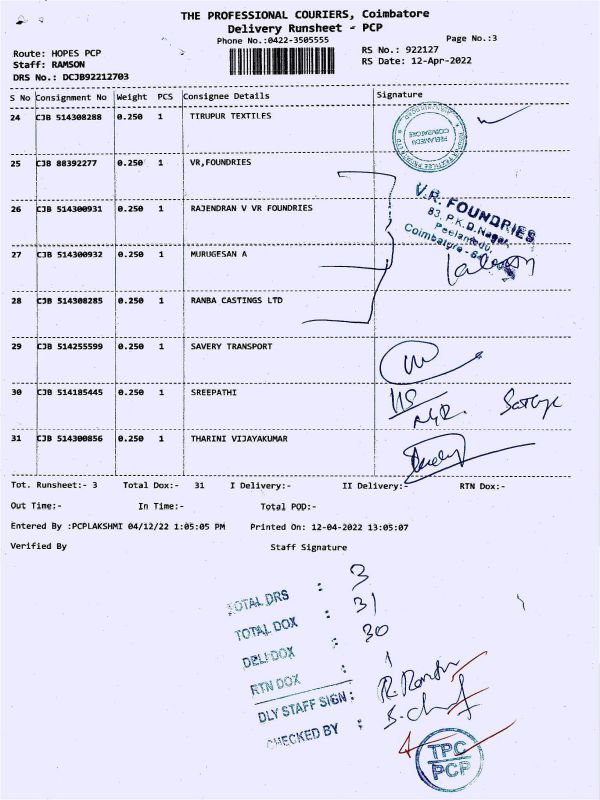 THE PROFESSIONAL COURIERS, Coimbatore
Delivery Runsheet - PCP
Phone No.:0422-3505555
Page No.:3
Route: HOPES PCP
RS No.: 922127
Staff: RAMSON
RS Date: 12-Apr-2022
DRS No.: DCJB92212703
S No Consignment No Weight PCS Consignee Details Signature
24 CJB 514308288 0.250 1 TIRUPUR TEXTILES
PEELAMEDU
COIMBATORE
25 CJB 88392277 0.250 1 VR,FOUNDRIES
26 CJB 514300931 0.250 1 RAJENDRAN V VR FOUNDRIES
V.R. FOUNDRIES
83, P.K.D.Nagar,
Peelamedu,
Coimbatore - 64
27 CJB 514300932 0.250 1 MURUGESAN A
28 CJB 514308285 0.250 1 RANBA CASTINGS LTD
29 CJB 514255599 0.250 1 SAVERY TRANSPORT
30 CJB 514185445 0.250 1 SREEPATHI
31 CJB 514300856 0.250 1 THARINI VIJAYAKUMAR
Tot. Runsheet:- 3 Total Dox:- 31 I Delivery:- II Delivery:- RTN Dox:-
Out Time:- In Time:- Total POD:-
Entered By :PCPLAKSHMI 04/12/22 1:05:05 PM Printed On: 12-04-2022 13:05:07
Verified By Staff Signature
TOTAL DRS : 3
TOTAL DOX : 31
DELI DOX : 30
RTN DOX : 1
DLY STAFF SIGN :
CHECKED BY :
TPC
PCP